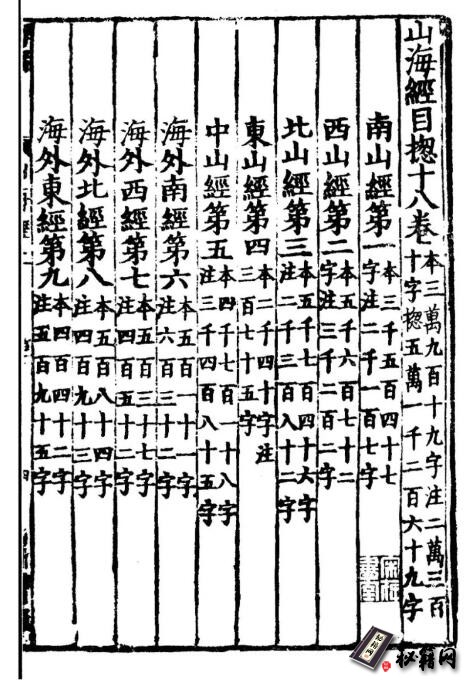 山海經目揔十八卷 本三萬九百十九字注二萬三百
十字揔五萬一千二百六十九字
南山經第一 本三千五百四十七
字注二千一百七字
西山經第二 本五千六百七十二
字注三千二百二字
北山經第三 本五千七百四十六字
注二千三百八十二字
東山經第四 本二千四十字注
三百七十五字
中山經第五 本四千七百一十八字
注三千四百八十五字
海外南經第六 本五百一十一字
注六百三十二字
海外西經第七 本五百三十七字
注四百五十二字
海外北經第八 本五百八十四字
注四百九十三字
海外東經第九 本四百四十二字
注五百九十五字
秘籍网